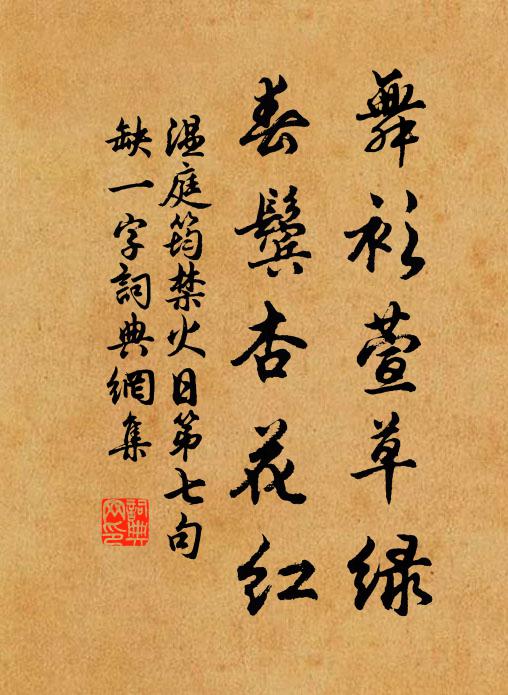 舞衫萱草绿
春鬓杏花红
温庭筠禁火日第七句
缺一字词典网集
词典
网印